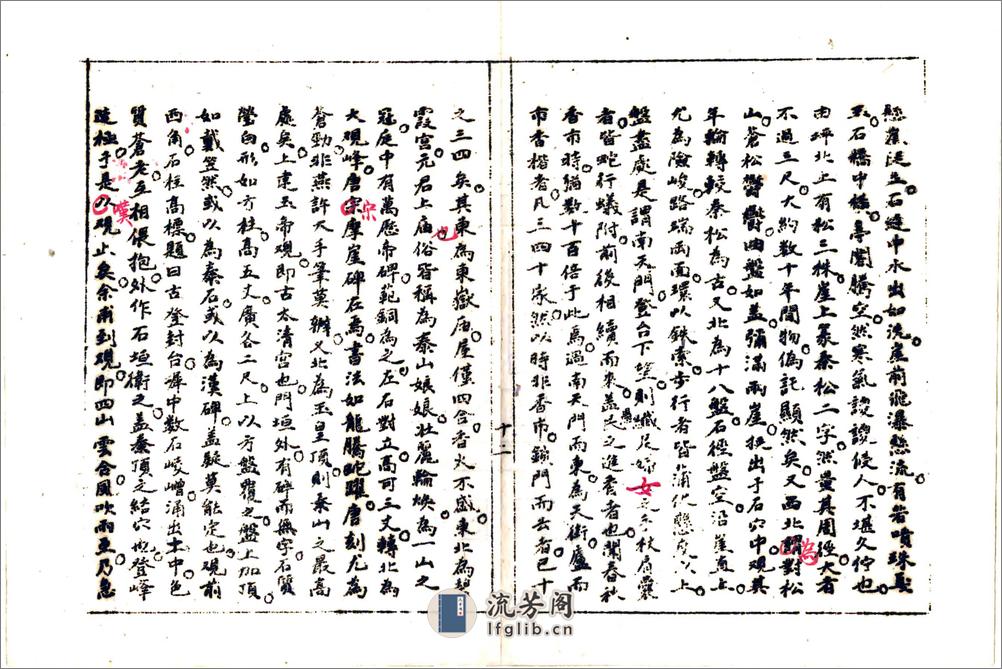 懸崖送立石縫中水出如洗崖前飛瀑懸流有若噴珠戞
玉石橋中橫亭閣騰空然寒氣謖謖侵人不堪久佇也
由坪北上有松三株崖上篆秦松二字然量其周徑大者
不過三尺大約數十年間物偽託顯然矣又西北為對松
山蒼松鬱鬱曲盤如蓋彌滿兩崖挺出于石穴中觀其
年輪轉較秦松為古又北為十八盤石徑盤空沿崖直上
尤為險峻路端兩面環以鉄索步行者皆蒲伏懸度以上
盤盡處是謂南天門登台下望則纖足婦女
者皆蛇行蟻附前後相續而來蓋
之進香者也聞春秋
香市時猶數十百倍于此焉過南天門而東為天街廬而
市香楮者凡三四十家然以時非香市鎖門而去者已十
十二
之三四矣其東為東嶽庙屋僅四合香火不盛東北為碧
霞宮元君上庙也俗皆稱為泰山娘娘壯麗輪煥為一山之
冠庭中有萬歷帝碑範銅為之左右對立高可三丈轉北為
大觀峰唐宗摩崖碑在焉書法如龍騰蛇躍唐刻尤為
蒼勁非燕許大手筆莫辦又北為玉皇頂則泰山之最高
處矣上建玉帝觀即古太清宮也門垣外有碑而無字石質
瑩白形如方柱高五丈廣各二尺上以方盤覆之盤上加頂
如戴笠然或以為秦石或以為漢碑蓋疑莫能定也觀前
西角石柱高標題曰古登封台庫中數石崚嶒涌出土中色
質蒼老互相偎抱外作石垣衛之蓋泰頂之結穴也登峰
造極于是嘆觀止矣余甫到觀即四山雲合風吹雨至乃急
流芳阁
lfglib.cn